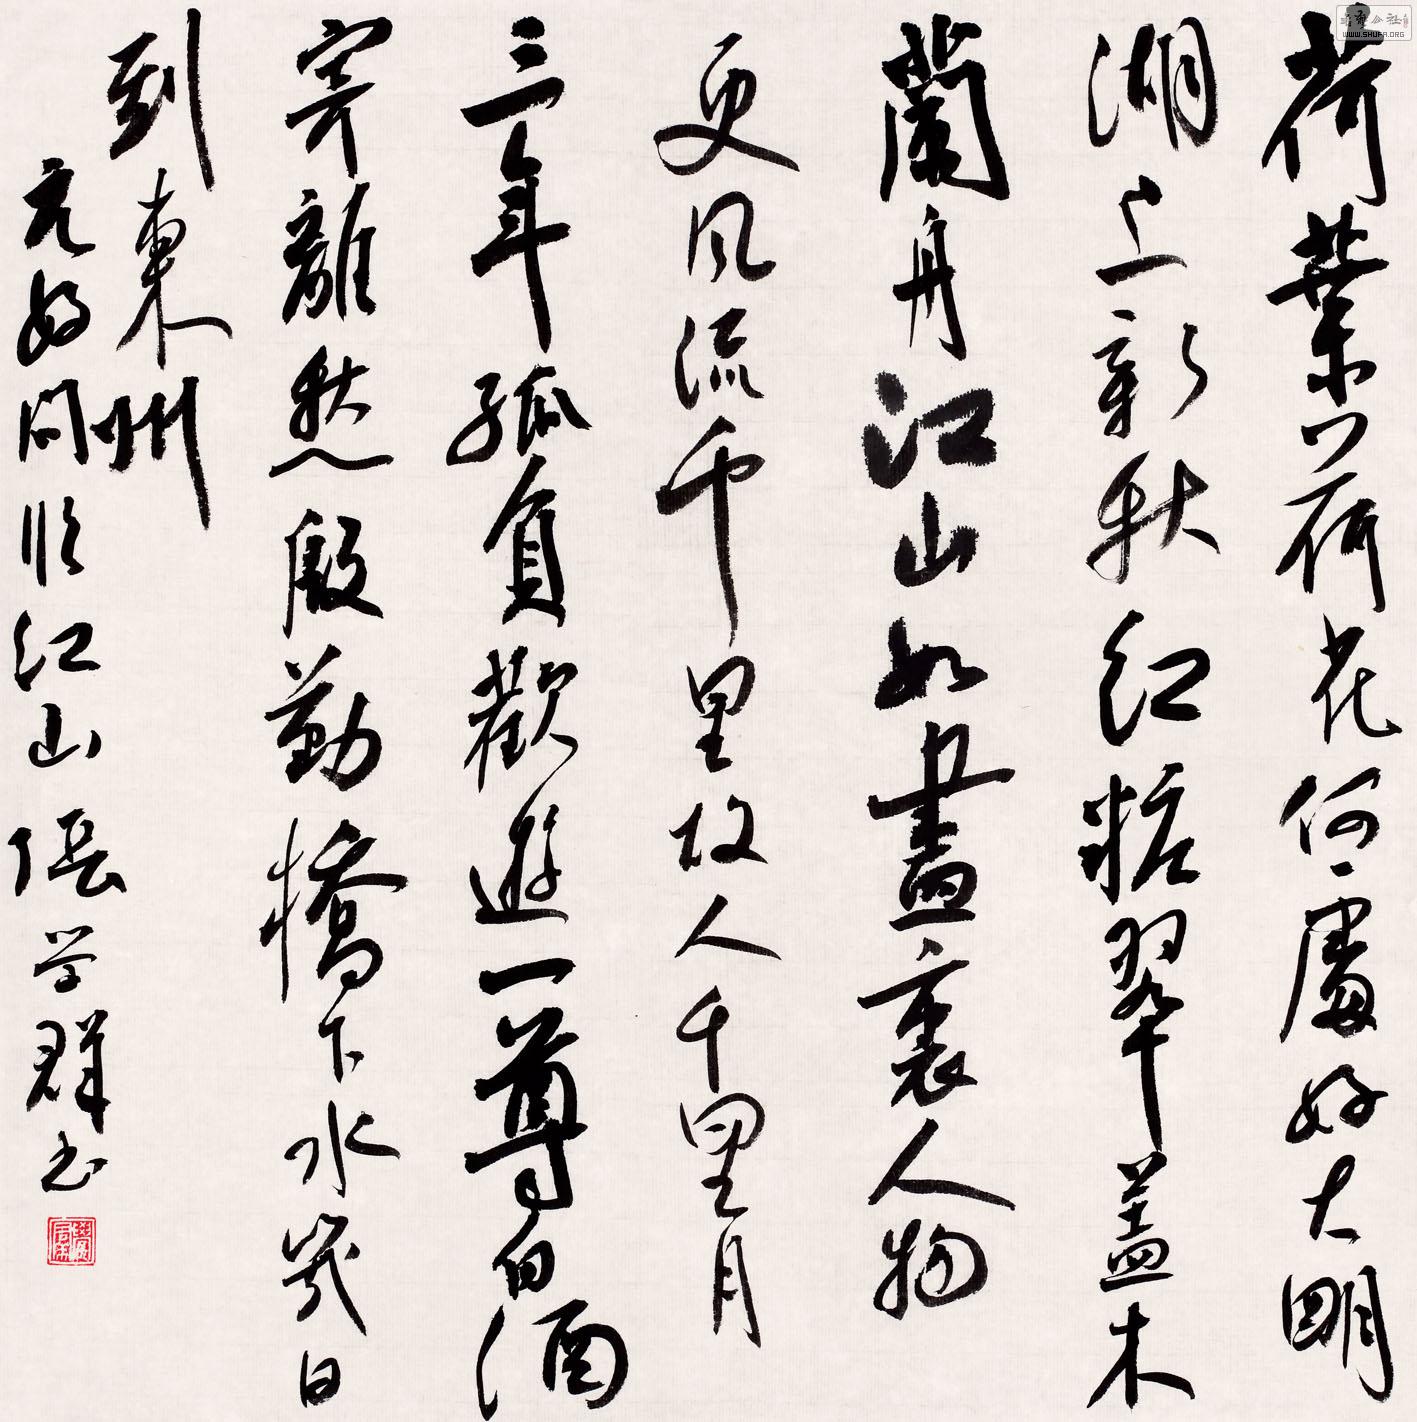 荷葉荷花何處好大明
湖上新秋紅粧翠蓋木
蘭舟江山如畫裏人物
更風流千里故人千里月
三年孤負歡遊一尊白酒
寄離愁殷勤橋下水幾日
到東州
元好問臨江山張学群书
WWW.SHUFA.ORG